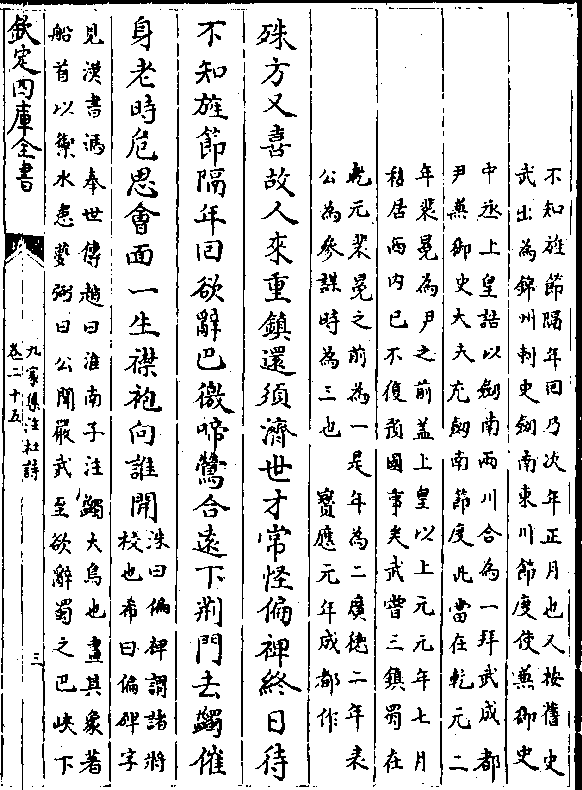 不知旌節隔年回乃次年正月也又按舊史
武出為錦州刺史劔南東川節度使兼御史
中丞上皇誥以劔南兩川合為一拜武成都
尹兼御史大夫充劔南節度此當在乾元二
年裴冕為尹之前盖上皇以上元元年七月
移居西内已不復預國事矣武嘗三鎮蜀在
乾元裴冕之前為一是年為二廣徳二年表
公為參謀時為三也　寶應元年成都作
殊方又喜故人來重鎮還須濟世才常怪偏裨終日待
不知旌節隔年回欲辭巴徼啼鶯合遠下荆門去鷁催
身老時危思會面一生襟袍向誰開
洙曰偏裨謂諸將
校也希曰偏碑字
見漢書馮奉世傳趙曰淮南子注鷁大鳥也畫其象著
船首以禦水患夢弼曰公聞嚴武至欲辭蜀之巴峽下
欽定四庫全書
九家集注杜詩
卷二十五
三